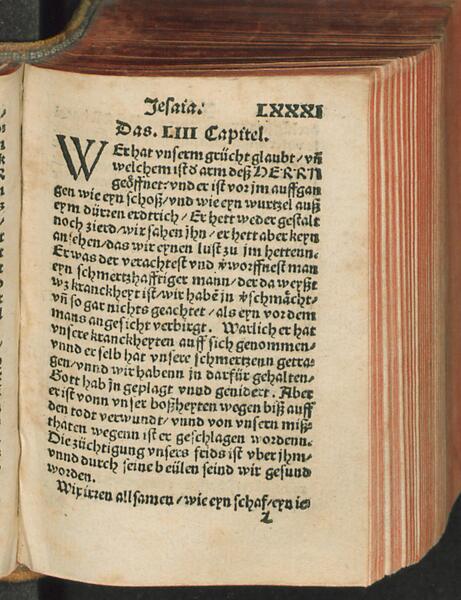 Jesaia. LXXXI
Das. LIII Capitel.
WEr hat vnserm grücht glaubt / vñ
welchem ist d arm deß HERRN
geöffnet: vnd er ist vor jm auffgan
gen wie eyn schoß / vnd wie eyn wurtzel auß
eym dürren erdtrich / Er hett weder gestalt
noch zierd / wir sahen jhn / er hett aber keyn
ansehen / das wir eynen lust zu jm hettenn.
Er was der verachtest vnd v̈worffnest man
eyn schmertzhafftiger mann / der da weyßt
wz kranckheyt ist / wir habē jn v̈schmächt /
vñ so gar nichts geachtet / als eyn vor dem
mans angesicht verbirgt. Warlich er hat
vnsere kranckheyten auff sich genommen /
vnnd er selb hat vnsere schmertzenn getra-
gen / vnnd wir habenn jn darfür gehalten /
Gott hab jn geplagt vnnd genidert. Aber
er ist vonn vnser boßheyten wegen biß auff
den todt verwundt / vnnd von vnsern miß-
thaten wegenn ist er geschlagen wordenn.
Die züchtigung vnsers frids ist vber jhm /
vnnd durch seine beülen seind wir gesund
worden.
Wir irren allsamen / wie eyn schaf / eyn ie
L